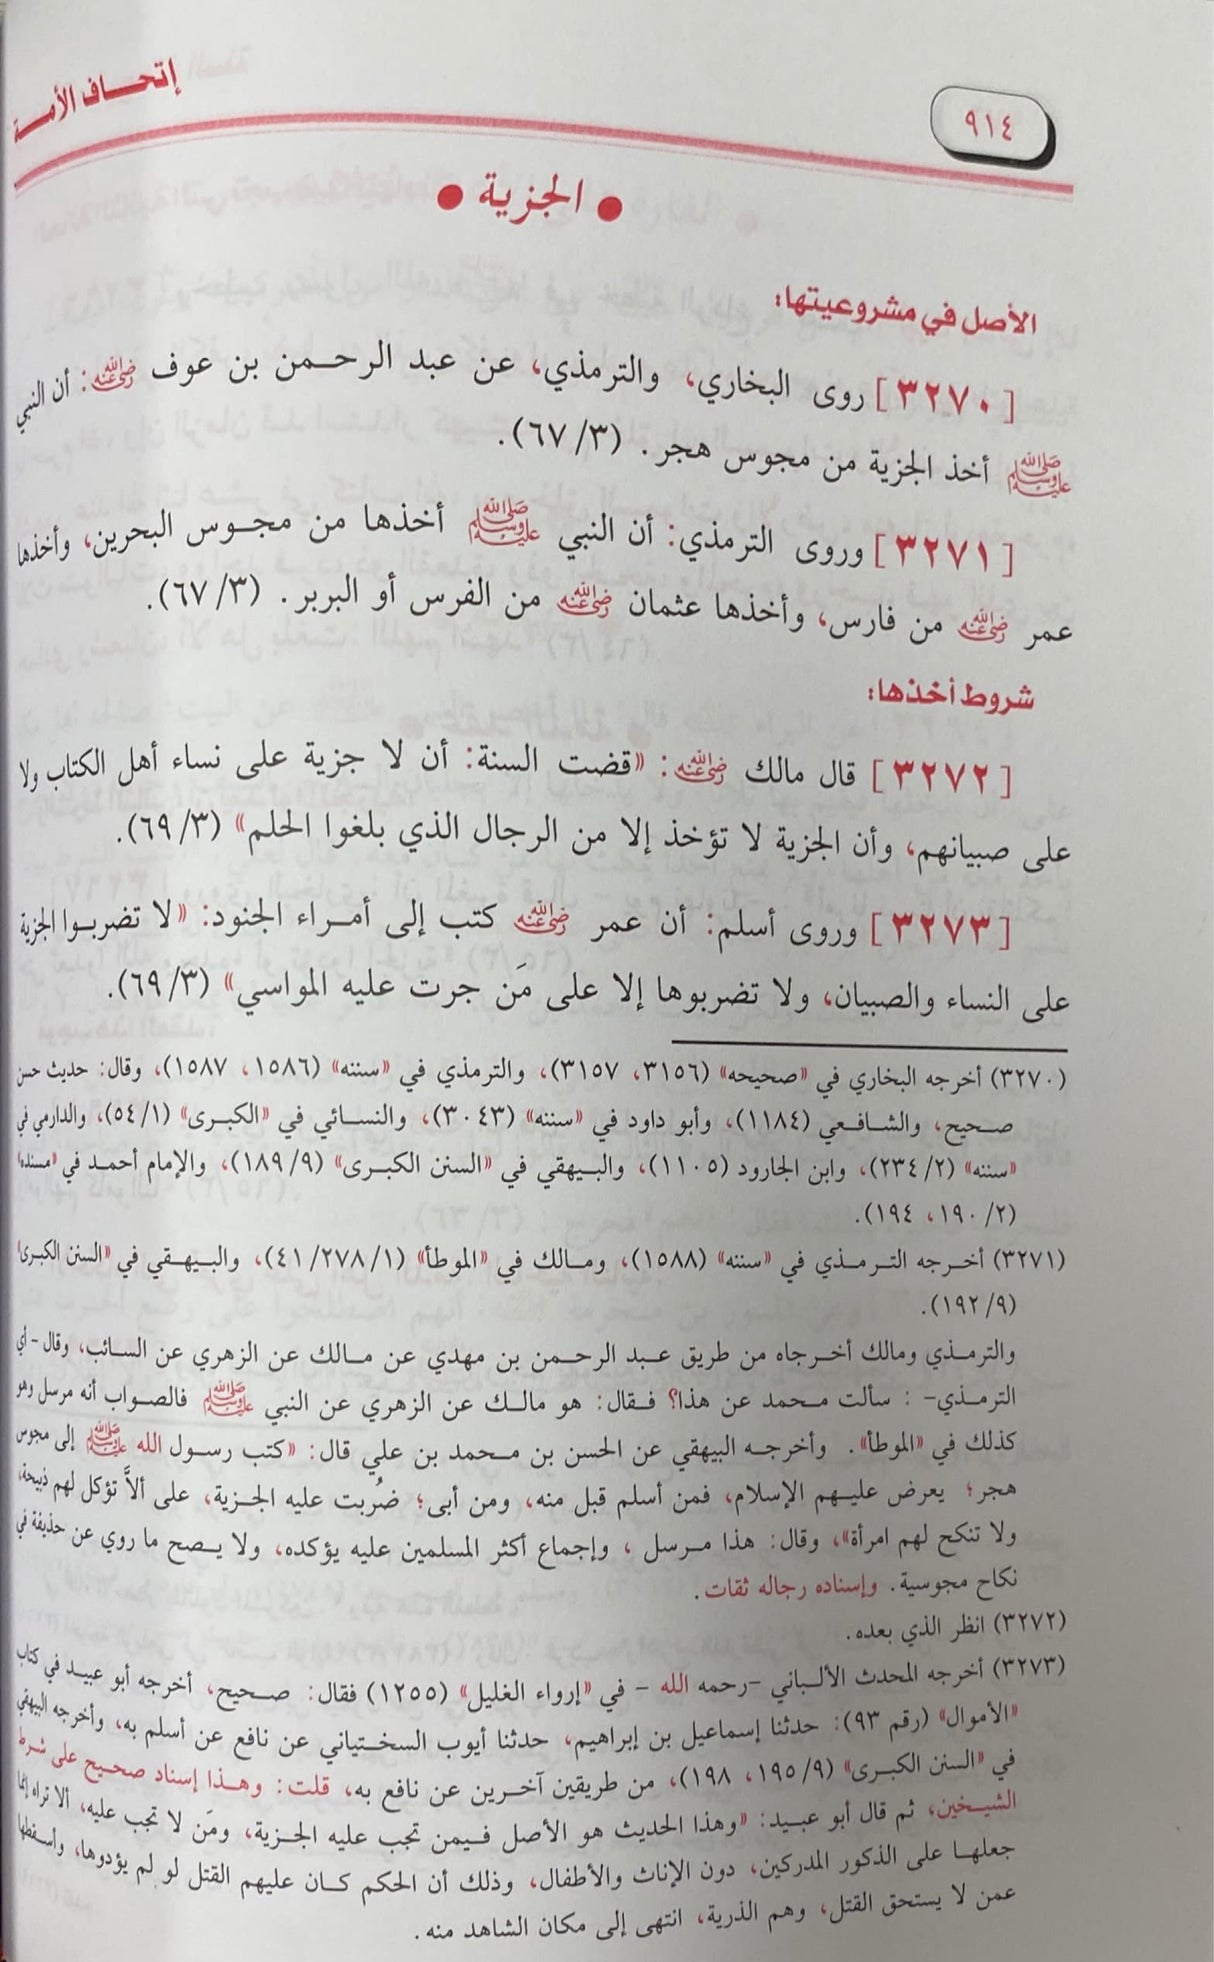 إتحاف الأمة
٩١٤
• الجزية •
الأصل في مشروعيتها:
[٣٢٧٠] روى البخاري، والترمذي، عن عبد الرحمن بن عوف رضي الله عنه: أن النبي
صلى الله عليه وسلم أخذ الجزية من مجوس هجر. (٦٧/٣).
[٣٢٧١] وروى الترمذي: أن النبي صلى الله عليه وسلم أخذها من مجوس البحرين، وأخذها
عمر رضي الله عنه من فارس، وأخذها عثمان رضي الله عنه من الفرس أو البربر. (٦٧/٣).
شروط أخذها:
[٣٢٧٢] قال مالك رضي الله عنه: «قضت السنة: أن لا جزية على نساء أهل الكتاب ولا
على صبيانهم، وأن الجزية لا تؤخذ إلا من الرجال الذي بلغوا الحلم» (٦٩/٣).
[٣٢٧٣] وروى أسلم: أن عمر رضي الله عنه كتب إلى أمراء الجنود: «لا تضربوا الجزية
على النساء والصبيان، ولا تضربوها إلا على مَن جرت عليه المواسي» (٦٩/٣).
(٣٢٧٠) أخرجه البخاري في «صحيحه» (٣١٥٦، ٣١٥٧)، والترمذي في «سننه» (١٥٨٦، ١٥٨٧)، وقال: حديث حسن
صحيح، والشافعي (١١٨٤)، وأبو داود في «سننه» (٣٠٤٣)، والنسائي في «الكبرى» (٥٤/١)، والدارمي في
«سننه» (٢٣٤/٢)، وابن الجارود (١١٠٥)، والبيهقي في «السنن الكبرى» (١٨٩/٩)، والإمام أحمد في «مسنده»
(١٩٠/٢، ١٩٤).
(٣٢٧١) أخرجه الترمذي في «سننه» (١٥٨٨)، ومالك في «الموطأ» (٤١/٢٧٨/١)، والبيهقي في «السنن الكبرى»
(١٩٢/٩).
والترمذي ومالك أخرجاه من طريق عبد الرحمن بن مهدي عن مالك عن الزهري عن السائب، وقال - أي
الترمذي- : سألت محمد عن هذا؟ فقال: هو مالك عن الزهري عن النبي صلى الله عليه وسلم فالصواب أنه مرسل وهو
كذلك في «الموطأ». وأخرجه البيهقي عن الحسن بن محمد بن علي قال: «كتب رسول الله صلى الله عليه وسلم إلى مجوس
هجر؛ يعرض عليهم الإسلام، فمن أسلم قبل منه، ومن أبى؛ ضُربت عليه الجزية، على ألاَّ تؤكل لهم ذبيحة،
ولا تنكح لهم امرأة»، وقال: هذا مرسل ، وإجماع أكثر المسلمين عليه يؤكده، ولا يصح ما روي عن حذيفة في
نكاح مجوسية. وإسناده رجاله ثقات.
(٣٢٧٢) انظر الذي بعده.
(٣٢٧٣) أخرجه المحدث الألباني -رحمه الله - في «إرواء الغليل» (١٢٥٥) فقال: صحيح، أخرجه أبو عبيد في كتاب
«الأموال» (رقم ٩٣): حدثنا إسماعيل بن إبراهيم، حدثنا أيوب السختياني عن نافع عن أسلم به، وأخرجه البيهقي
في «السنن الكبرى» (١٩٥/٩، ١٩٨)، من طريقين آخرين عن نافع به، قلت: وهذا إسناد صحيح على شرط
الشيخين، ثم قال أبو عبيد: «وهذا الحديث هو الأصل فيمن تجب عليه الجزية، ومَن لا تجب عليه، ألا تراه إنما
جعلها على الذكور المدركين، دون الإناث والأطفال، وذلك أن الحكم كان عليهم القتل لو لم يؤدوها، وأسقطها
عمن لا يستحق القتل، وهم الذرية، انتهى إلى مكان الشاهد منه.